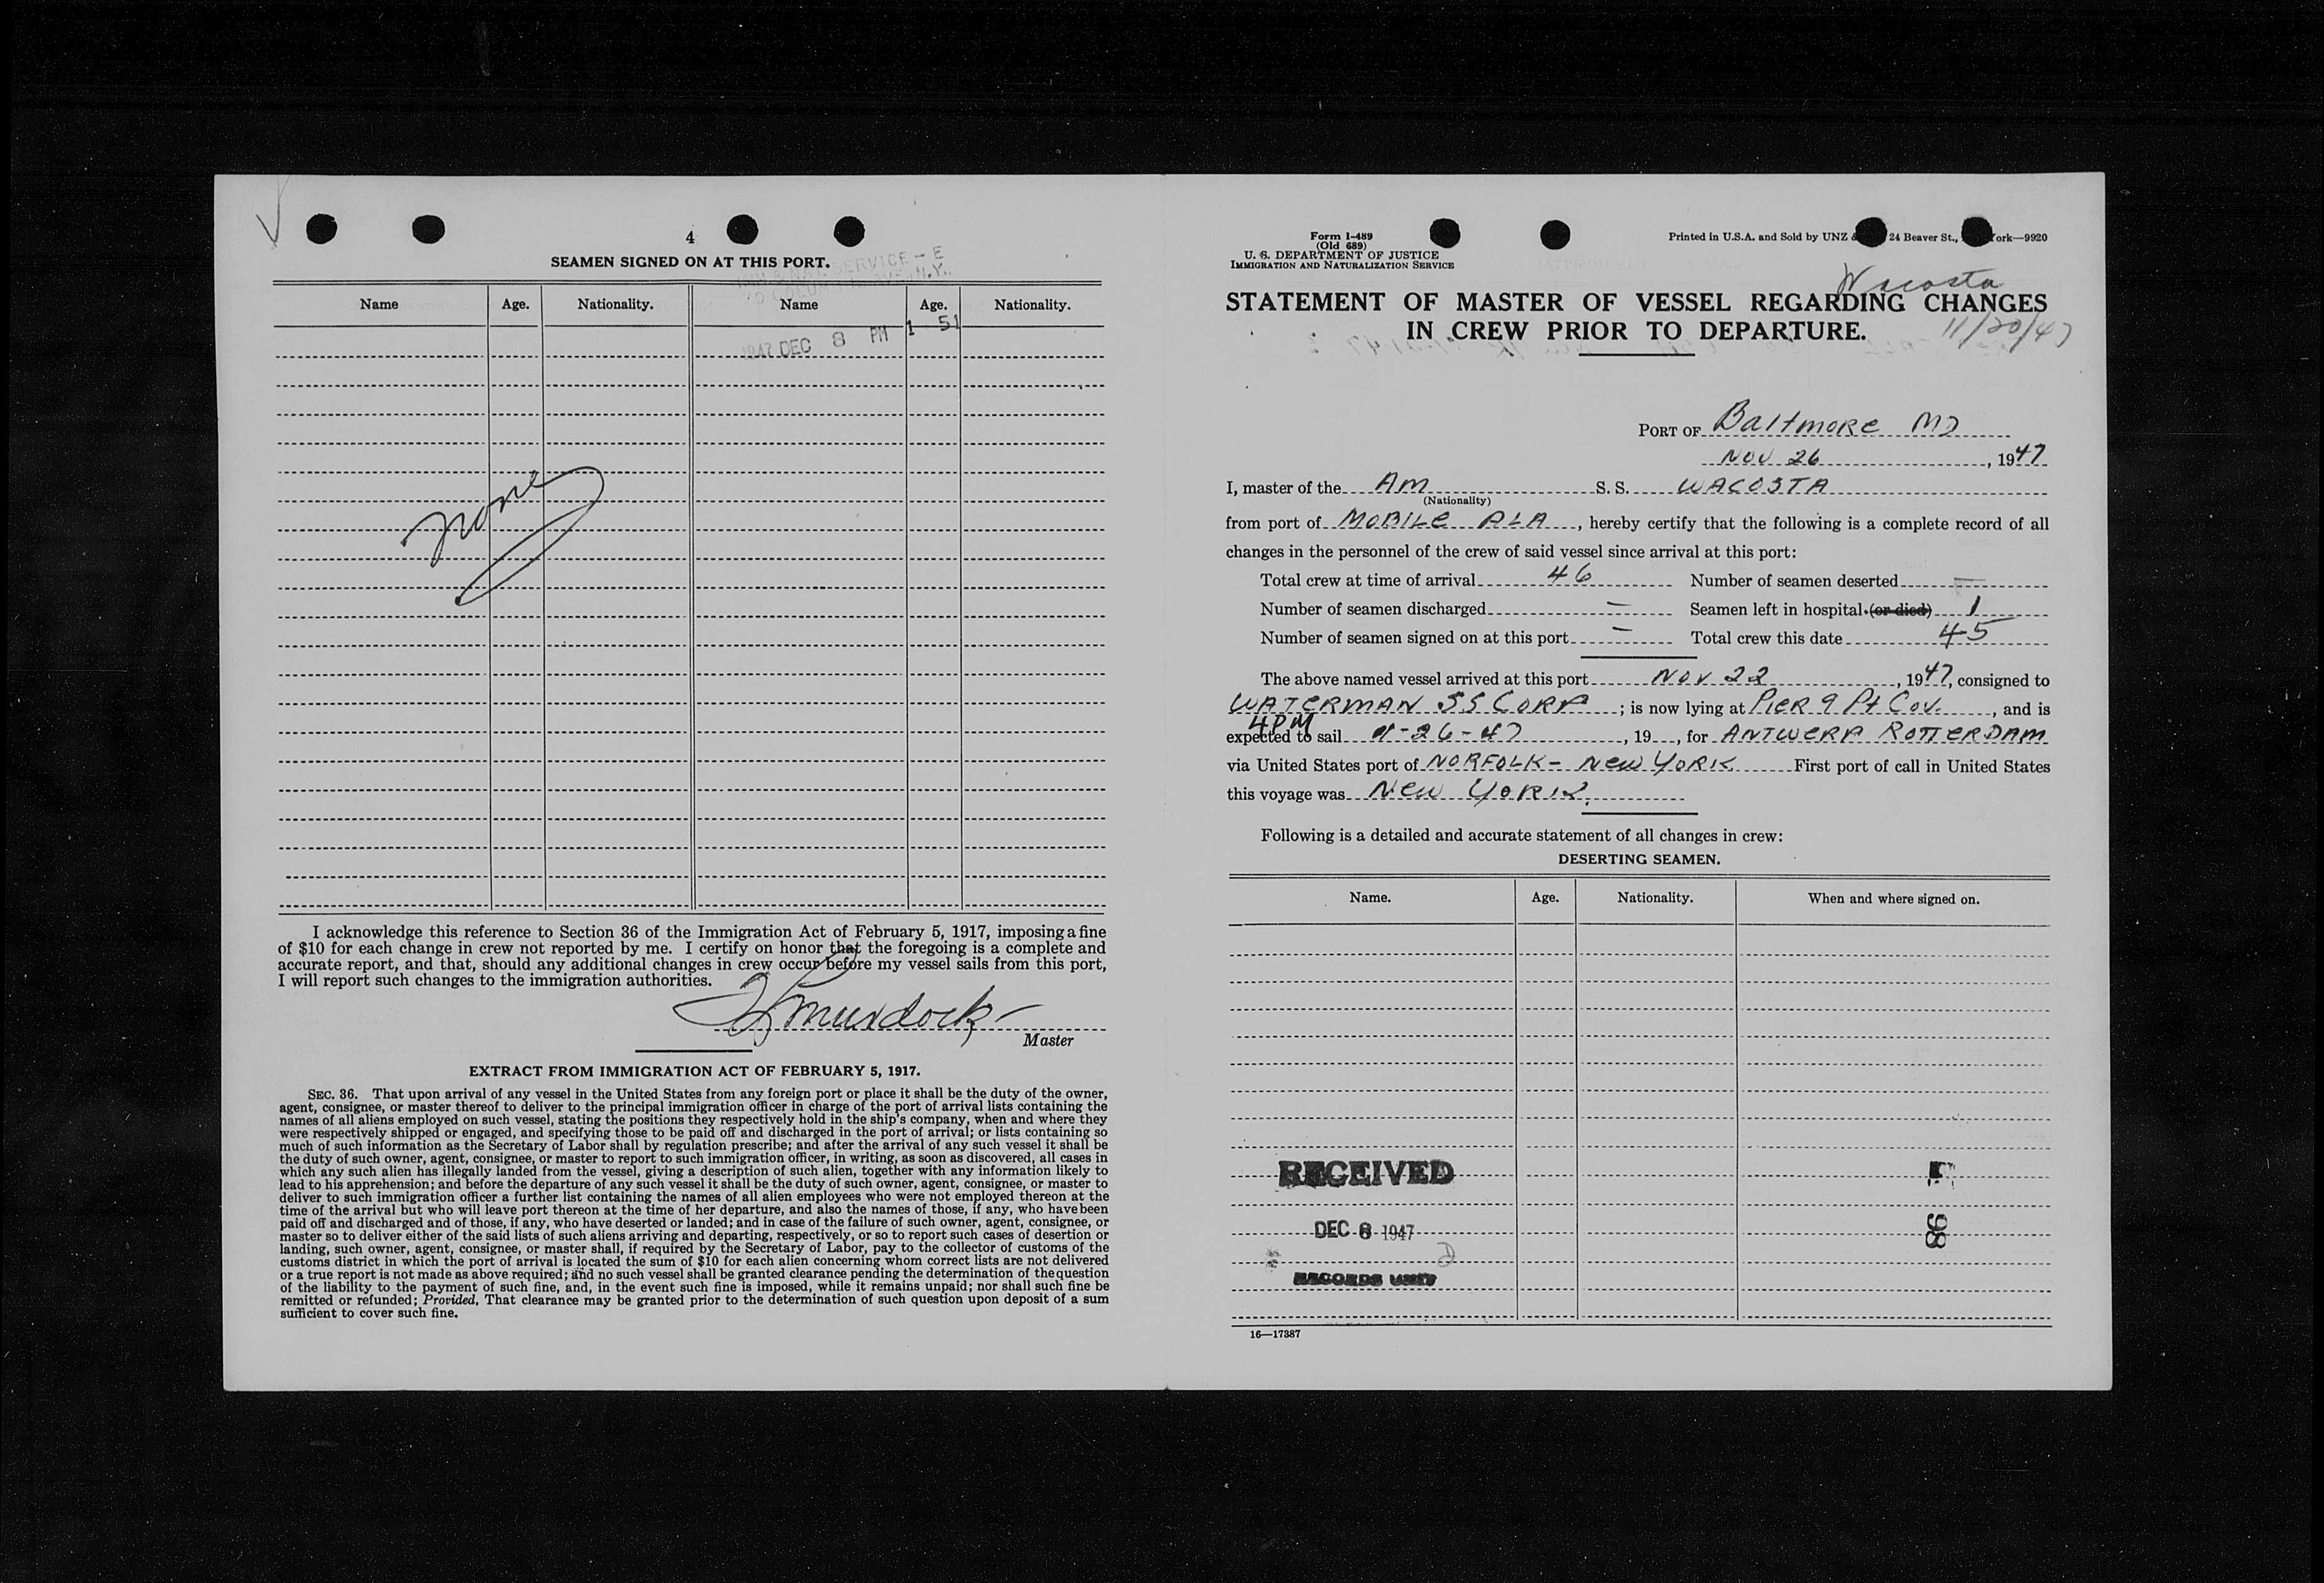 4
SEAMEN SIGNED ON AT THIS PORT.
SERVICE - E
N.Y.
Name Age. Nationality. Name Age. Nationality.
1947 DEC 8 PM 1 51
none
I acknowledge this reference to Section 36 of the Immigration Act of February 5, 1917, imposing a fine
of $10 for each change in crew not reported by me. I certify on honor that the foregoing is a complete and
accurate report, and that, should any additional changes in crew occur before my vessel sails from this port,
I will report such changes to the immigration authorities.
Murdock
Master
EXTRACT FROM IMMIGRATION ACT OF FEBRUARY 5, 1917.
SEC. 36. That upon arrival of any vessel in the United States from any foreign port or place it shall be the duty of the owner,
agent, consignee, or master thereof to deliver to the principal immigration officer in charge of the port of arrival lists containing the
names of all aliens employed on such vessel, stating the positions they respectively hold in the ship's company, when and where they
were respectively shipped or engaged, and specifying those to be paid off and discharged in the port of arrival; or lists containing so
much of such information as the Secretary of Labor shall by regulation prescribe; and after the arrival of any such vessel it shall be
the duty of such owner, agent, consignee, or master to report to such immigration officer, in writing, as soon as discovered, all cases in
which any such alien has illegally landed from the vessel, giving a description of such alien, together with any information likely to
lead to his apprehension; and before the departure of any such vessel it shall be the duty of such owner, agent, consignee, or master to
deliver to such immigration officer a further list containing the names of all alien employees who were not employed thereon at the
time of the arrival but who will leave port thereon at the time of her departure, and also the names of those, if any, who have been
paid off and discharged and of those, if any, who have deserted or landed; and in case of the failure of such owner, agent, consignee, or
master so to deliver either of the said lists of such aliens arriving and departing, respectively, or so to report such cases of desertion or
landing, such owner, agent, consignee, or master shall, if required by the Secretary of Labor, pay to the collector of customs of the
customs district in which the port of arrival is located the sum of $10 for each alien concerning whom correct lists are not delivered
or a true report is not made as above required; and no such vessel shall be granted clearance pending the determination of the question
of the liability to the payment of such fine, and, in the event such fine is imposed, while it remains unpaid; nor shall such fine be
remitted or refunded; Provided, That clearance may be granted prior to the determination of such question upon deposit of a sum
sufficient to cover such fine.
Form I-489
(Old 689)
U. S. DEPARTMENT OF JUSTICE
IMMIGRATION AND NATURALIZATION SERVICE
Printed in U.S.A. and Sold by UNZ 24 Beaver St., ork—9920
Wacosta
STATEMENT OF MASTER OF VESSEL REGARDING CHANGES
IN CREW PRIOR TO DEPARTURE.
11/20/47
PORT OF Baltmore MD
NOV 26, 1947
I, master of the AM S. S. WACOSTA
(Nationality)
from port of MOBILE ALA, hereby certify that the following is a complete record of all
changes in the personnel of the crew of said vessel since arrival at this port:
Total crew at time of arrival 46 Number of seamen deserted —
Number of seamen discharged — Seamen left in hospital (or died) 1
Number of seamen signed on at this port — Total crew this date 45
The above named vessel arrived at this port NOV 22, 1947, consigned to
WATERMAN SS CORP; is now lying at PIER 9 Pt Cov., and is
4PM
expected to sail 11-26-47, 19, for ANTWERP ROTTERDAM
via United States port of NORFOLK - NEW YORK First port of call in United States
this voyage was NEW YORK.
Following is a detailed and accurate statement of all changes in crew:
DESERTING SEAMEN.
Name. Age. Nationality. When and where signed on.
RECEIVED
DEC 8 1947
RECORDS UNIT
98
16—17387